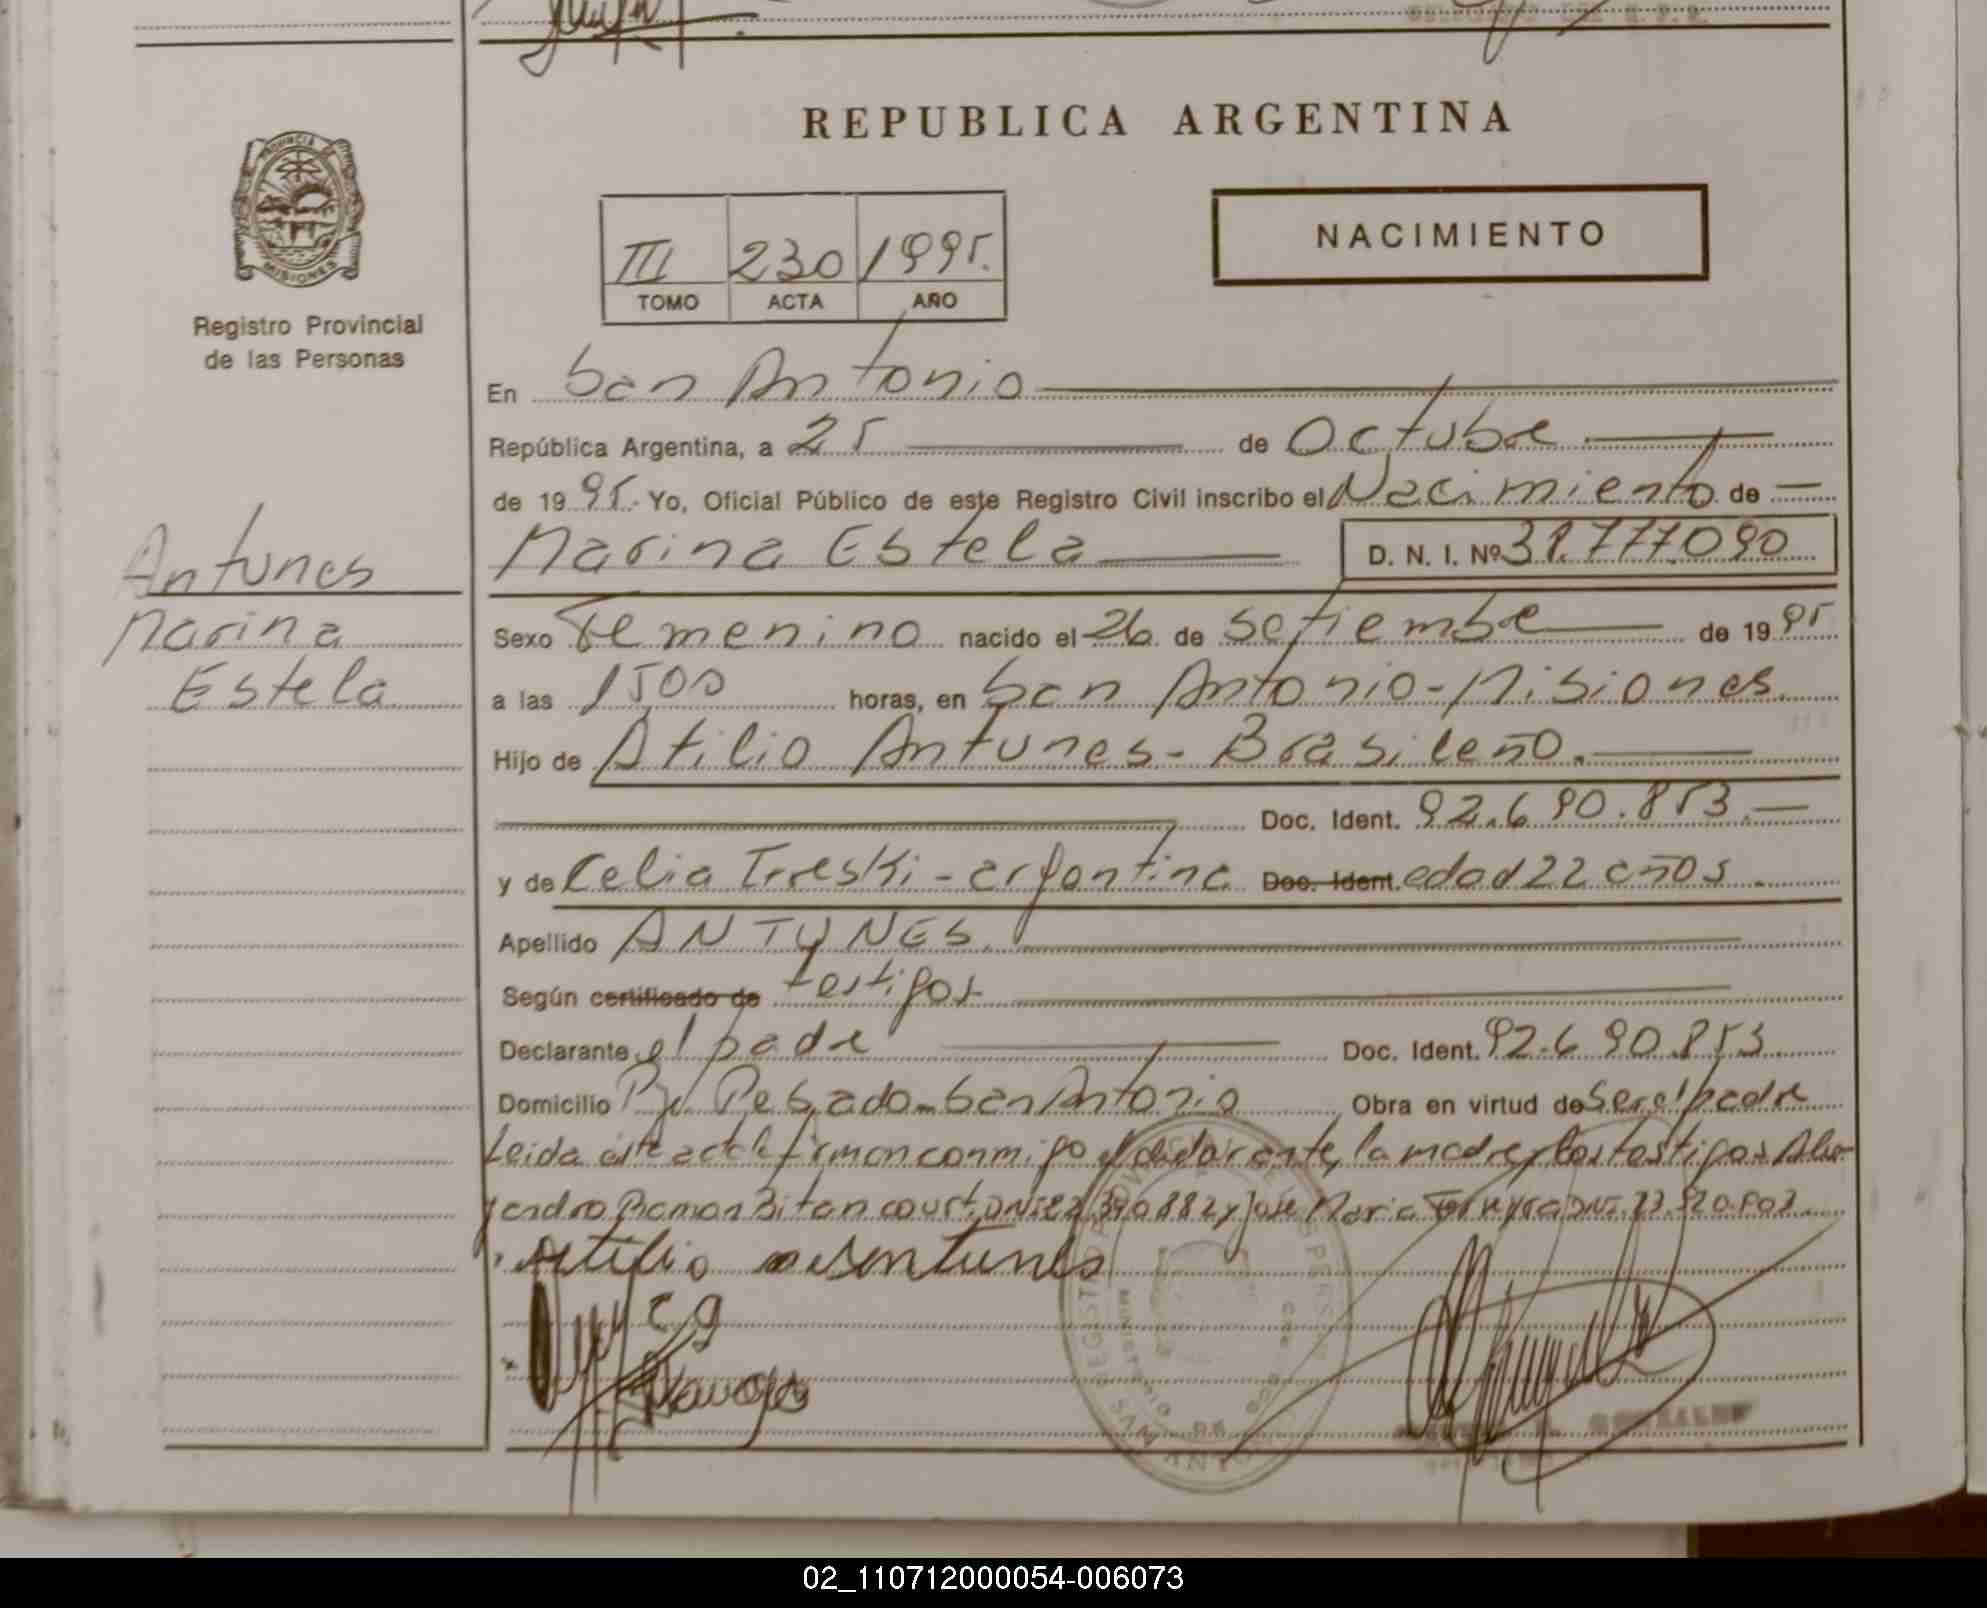 REPUBLICA ARGENTINA
PROVINCIA DE
MISIONES
Registro Provincial
de las Personas
NACIMIENTO
III 230 1995.
TOMO ACTA AÑO
En San Antonio
República Argentina, a 25 de Octubre
de 1995. Yo, Oficial Público de este Registro Civil inscribo el Nacimiento de
Antunes
Marina Estela D. N. I. Nº 38.777.090
Marina
Estela
Sexo Femenino nacido el 26 de Setiembre de 1995
a las 1500 horas, en San Antonio-Misiones.
Hijo de Atilio Antunes - Brasileño.
Doc. Ident. 92.690.853.
y de Celia Treski - argentina Doc. Ident. edad 22 años.
Apellido ANTUNES.
Según certificado de testigos
Declarante el padre Doc. Ident. 92.690.853
Domicilio Pje Pesado-San Antonio Obra en virtud de ser el padre
Leida este acta la firman conmigo el declarante, la madre y los testigos Ale-
jandro Ramon Bitancourt DNI y José Maria DNI
Atilio Antunes
SAN ANTONIO
02_110712000054-006073